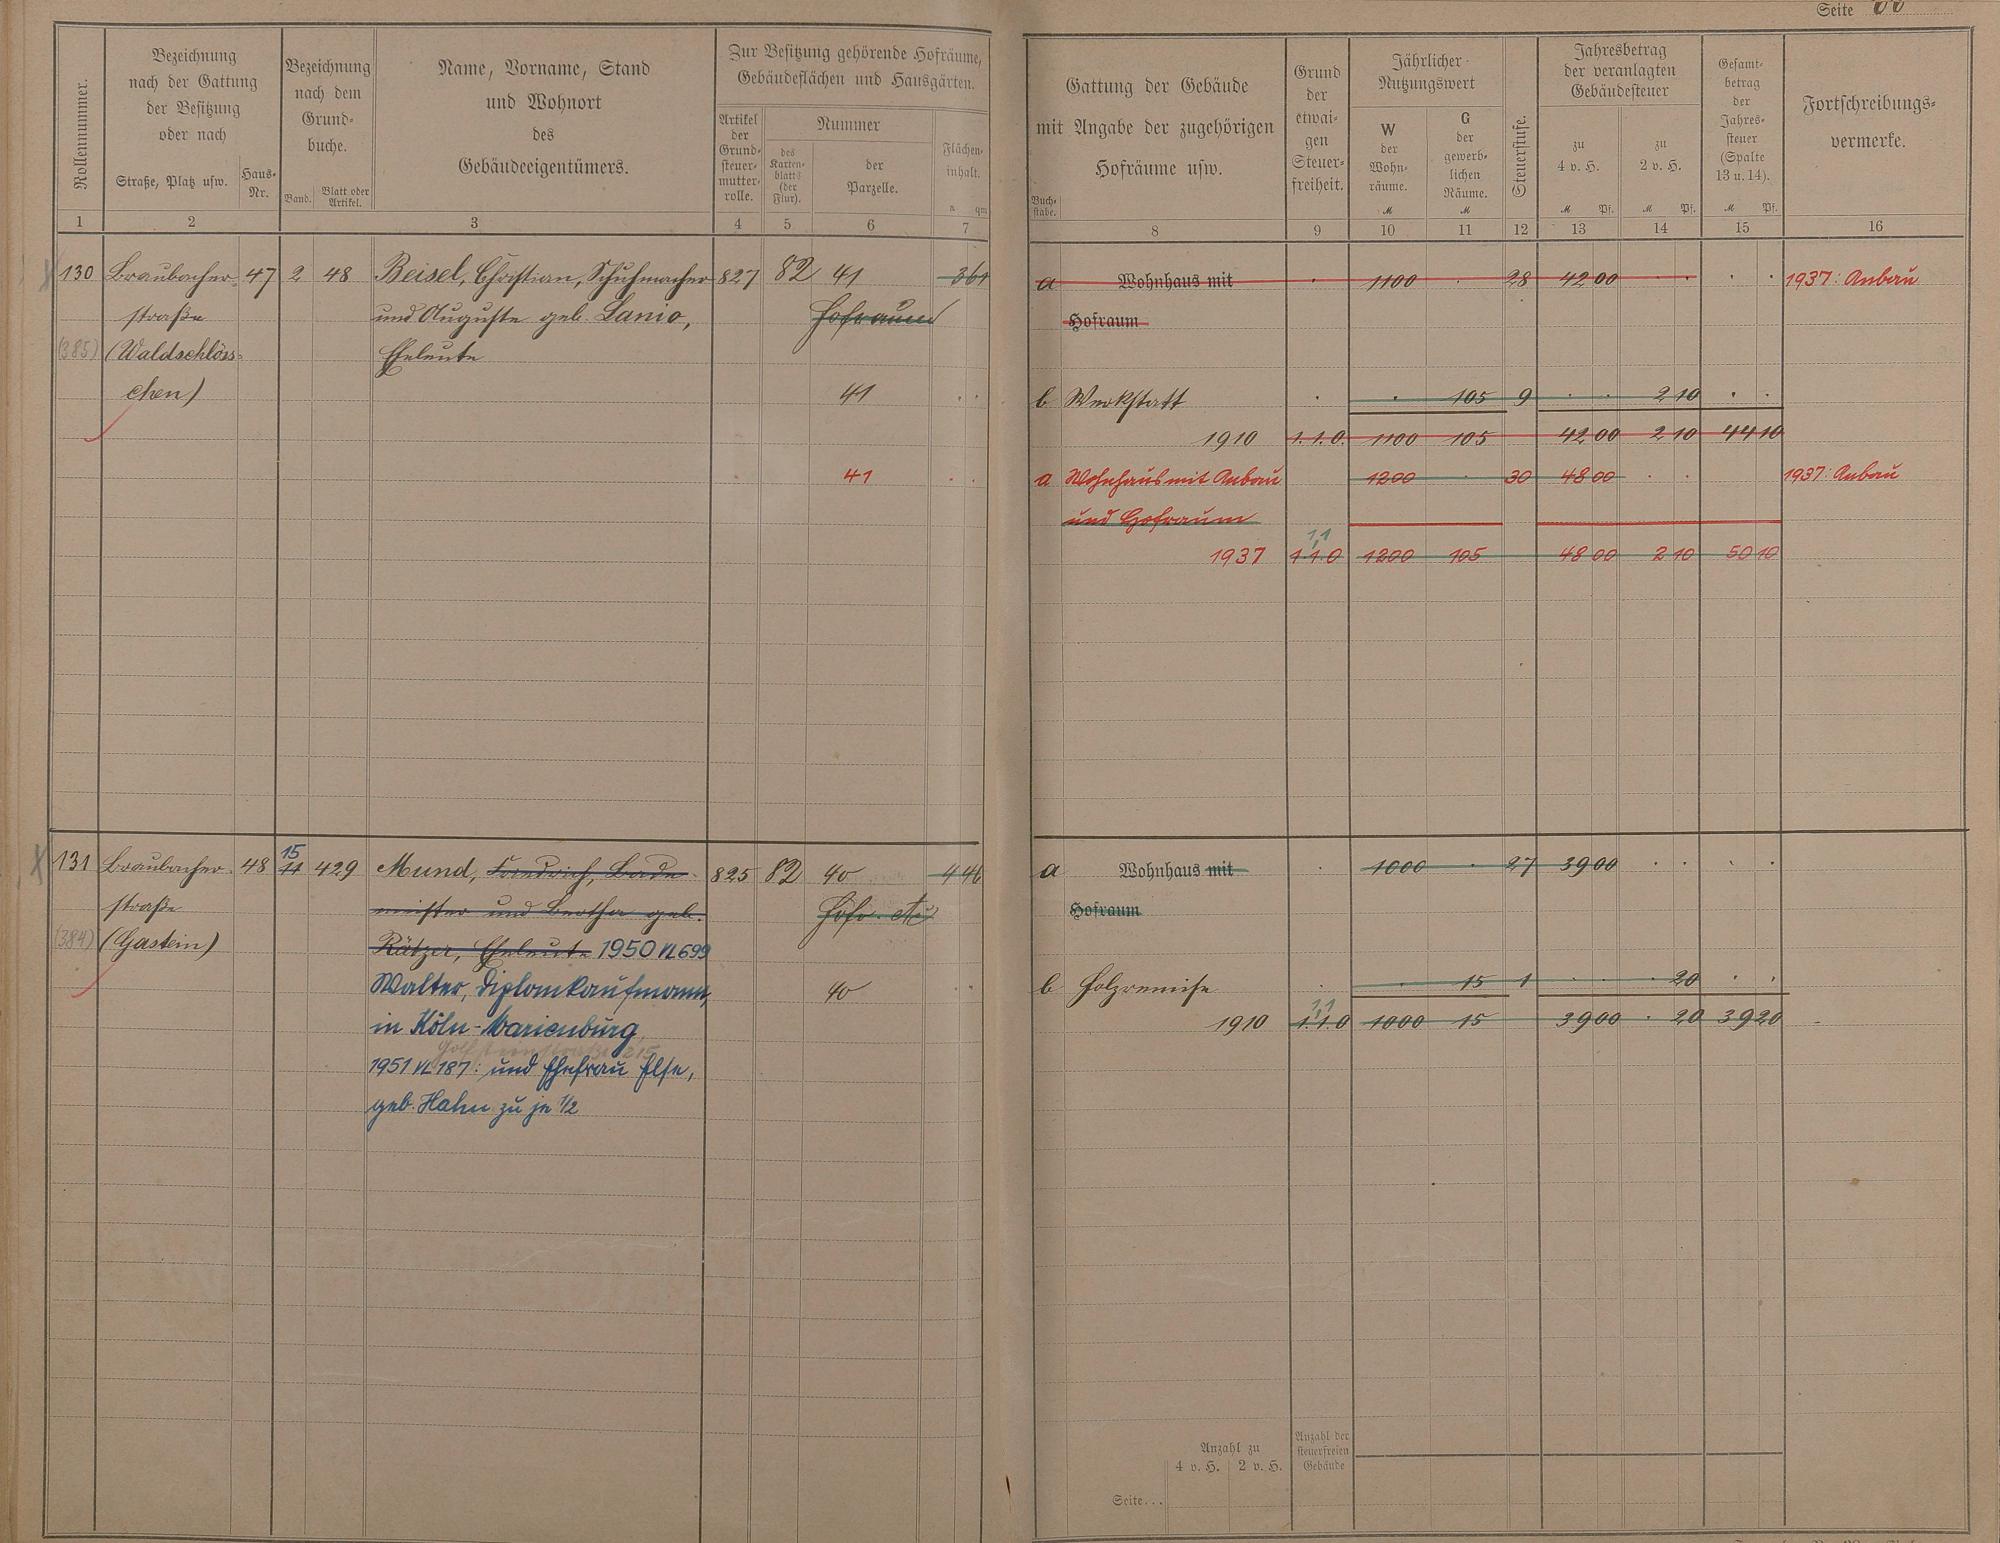 Seite
Rollennummer.
Bezeichnung
nach der Gattung
der Besitzung
oder nach
Straße, Platz usw.
Haus-
Nr.
Bezeichnung
nach dem
Grund-
buche.
Band.
Blatt oder
Artikel.
Name, Vorname, Stand
und Wohnort
des
Gebäudeeigentümers.
Zur Besitzung gehörende Hofräume,
Gebäudeflächen und Hausgärten.
Artikel
der
Grund-
steuer-
mutter-
rolle.
Nummer
des
Karten-
blatts
(der
Flur).
der
Parzelle.
Flächen-
inhalt.
a qm
Gattung der Gebäude
mit Angabe der zugehörigen
Hofräume usw.
Buch-
stabe.
Grund
der
etwai-
gen
Steuer-
freiheit.
Jährlicher
Nutzungswert
W
der
Wohn-
räume.
M
G
der
gewerb-
lichen
Räume.
M
Steuerstufe.
Jahresbetrag
der veranlagten
Gebäudesteuer
zu
4 v. H.
M Pf.
zu
2 v. H.
M Pf.
Gesamt-
betrag
der
Jahres-
steuer
(Spalte
13 u. 14).
M Pf.
Fortschreibungs-
vermerke.
1 2 3 4 5 6 7 8 9 10 11 12 13 14 15 16
130 Braubacher- 47 2 48 Beisel, Christian, Schuhmacher 827 82 41 361 a Wohnhaus mit 1100 28 42 00 1937: Anbau
straße und Auguste geb. Lanio, Hofraum Hofraum
(385) (Waldschlöss- Eheleute
chen) 41 b Werkstatt 105 9 2 10
1910 1.1.0. 1100 105 42 00 2 10 44 10
41 a Wohnhaus mit Anbau 1200 30 48 00 1937: Anbau
und Hofraum
1,1
1937 1 1.0 1200 105 48 00 2 10 50 10
15
131 Braubacher- 48 11 429 Mund, Friedrich, Bade- 825 82 40 4 46 a Wohnhaus mit 1000 27 39 00
straße meister und Bertha geb. Hofraum
(384) (Gastein) Rätzer, Eheleute 1950 VL 699
Walter, Diplomkaufmann, 40 b Holzremise 15 1 20
in Köln-Marienburg
1,1
1910 1.1.0 1000 15 39 00 20 39 20
1951 VL 187: und Ehefrau Else,
geb. Hahn zu je 1/2
Anzahl zu
4 v. H. 2 v. H.
Anzahl der
steuerfreien
Gebäude
Seite...